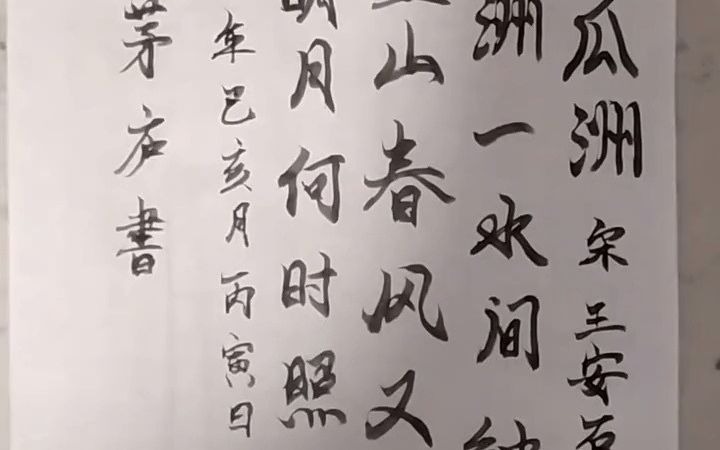 瓜洲 宋 王安石
洲一水间
山春风又
明月何时照
年巳亥月丙寅日
茅庐書